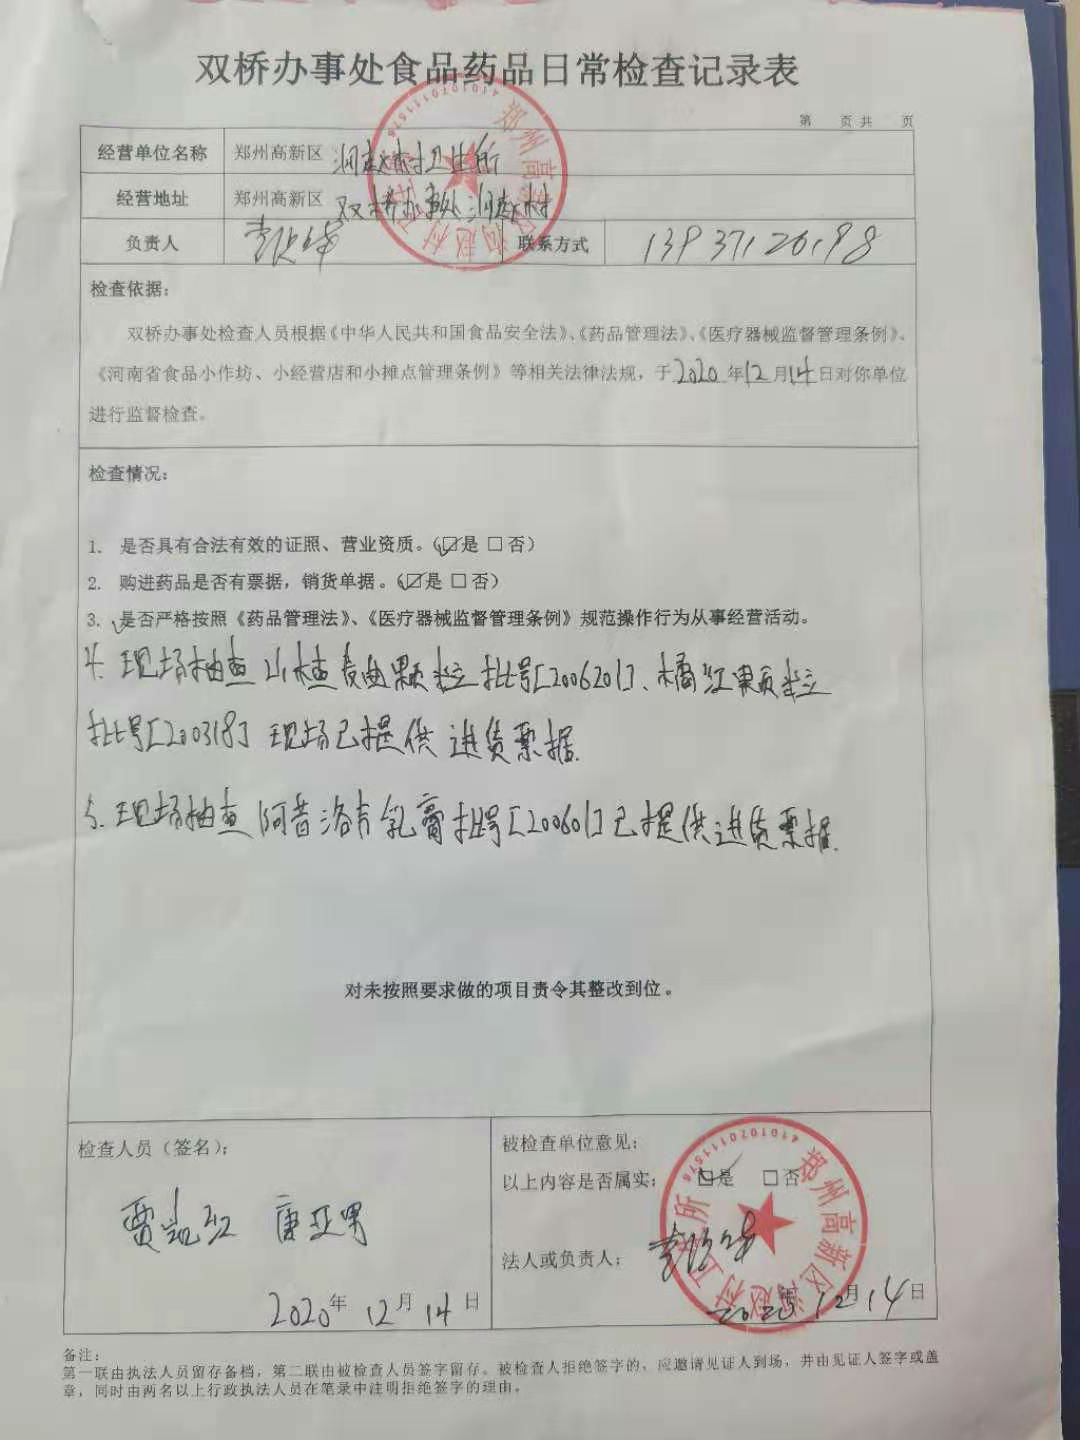 双桥办事处食品药品日常检查记录表
第 页 共 页
经营单位名称 郑州高新区 润赵村卫生所
经营地址 郑州高新区 双桥办事处润赵村
负责人 联系方式 13937126198
检查依据:
双桥办事处检查人员根据《中华人民共和国食品安全法》、《药品管理法》、《医疗器械监督管理条例》、
《河南省食品小作坊、小经营店和小摊点管理条例》等相关法律法规，于2020年12月14日对你单位
进行监督检查。
检查情况:
1. 是否具有合法有效的证照、营业资质。(☑是 □否)
2. 购进药品是否有票据，销货单据。(☑是 □否)
3. 是否严格按照《药品管理法》、《医疗器械监督管理条例》规范操作行为从事经营活动。
4. 现场抽查山楂麦曲颗粒批号[2006201]、橘红颗粒
批号[200318]现场已提供进货票据.
5. 现场抽查阿昔洛韦乳膏批号[200601]已提供进货票据.
对未按照要求做的项目责令其整改到位。
检查人员（签名）:
贾岚红 康亚男
2020年12月14日
被检查单位意见:
以上内容是否属实: ☑是 □否
法人或负责人:
2020年12月14日
郑州高新区润赵村卫生所
4101070111576
备注:
第一联由执法人员留存备档，第二联由被检查人员签字留存。被检查人拒绝签字的，应邀请见证人到场，并由见证人签字或盖
章，同时由两名以上行政执法人员在笔录中注明拒绝签字的理由。